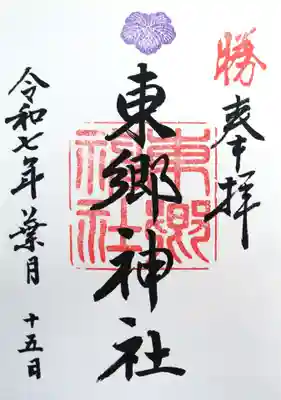 勝
奉拝
東郷神社
東郷神社
令和七年葉月 十五日